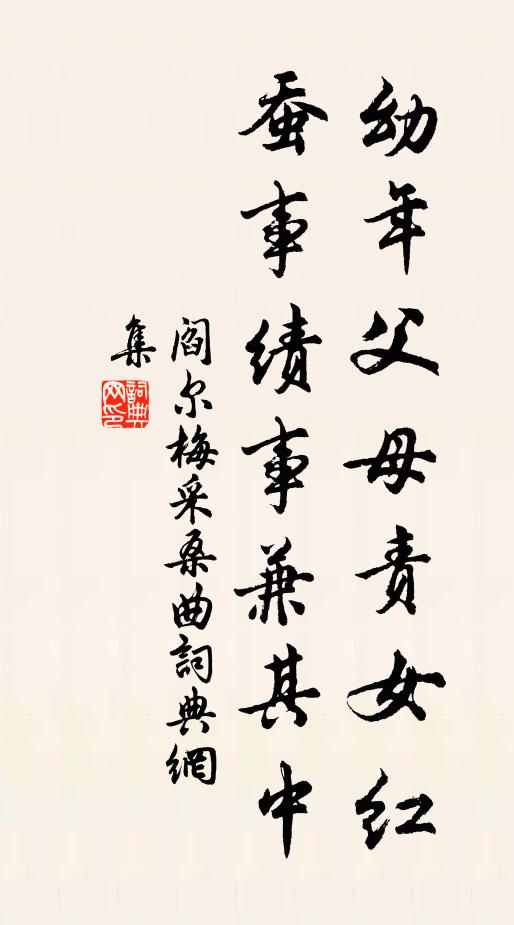 幼年父母责女红
蚕事绩事兼其中
阎尔梅采桑曲詞典網
集
詞典網印